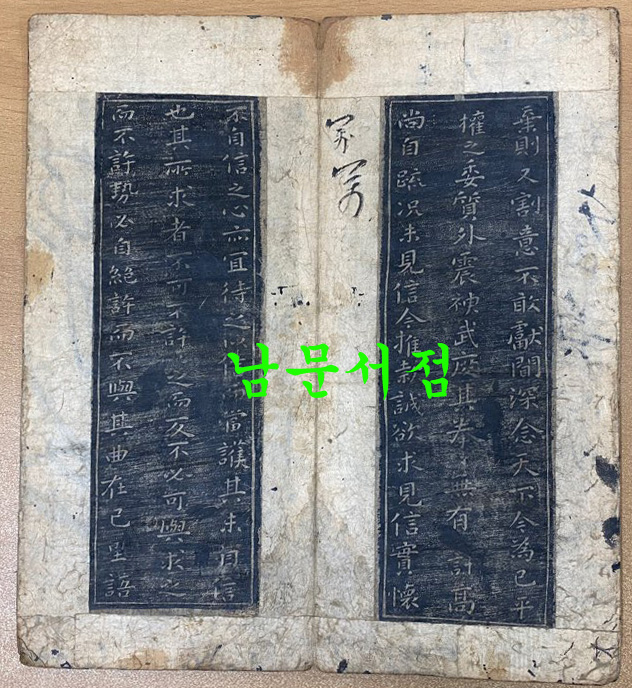 棄則又割意不敢獻聞深念天下今為已平
權之委質外震神武度其拳拳無有計高
尚自疏况未見信今推款誠欲求見信實懷
不自信之心亦宜待之以而當護其未自信
也其所求者不可不許之而反不必可與求之
而不許勢必自絕許而不與其曲在己里語
남문서점